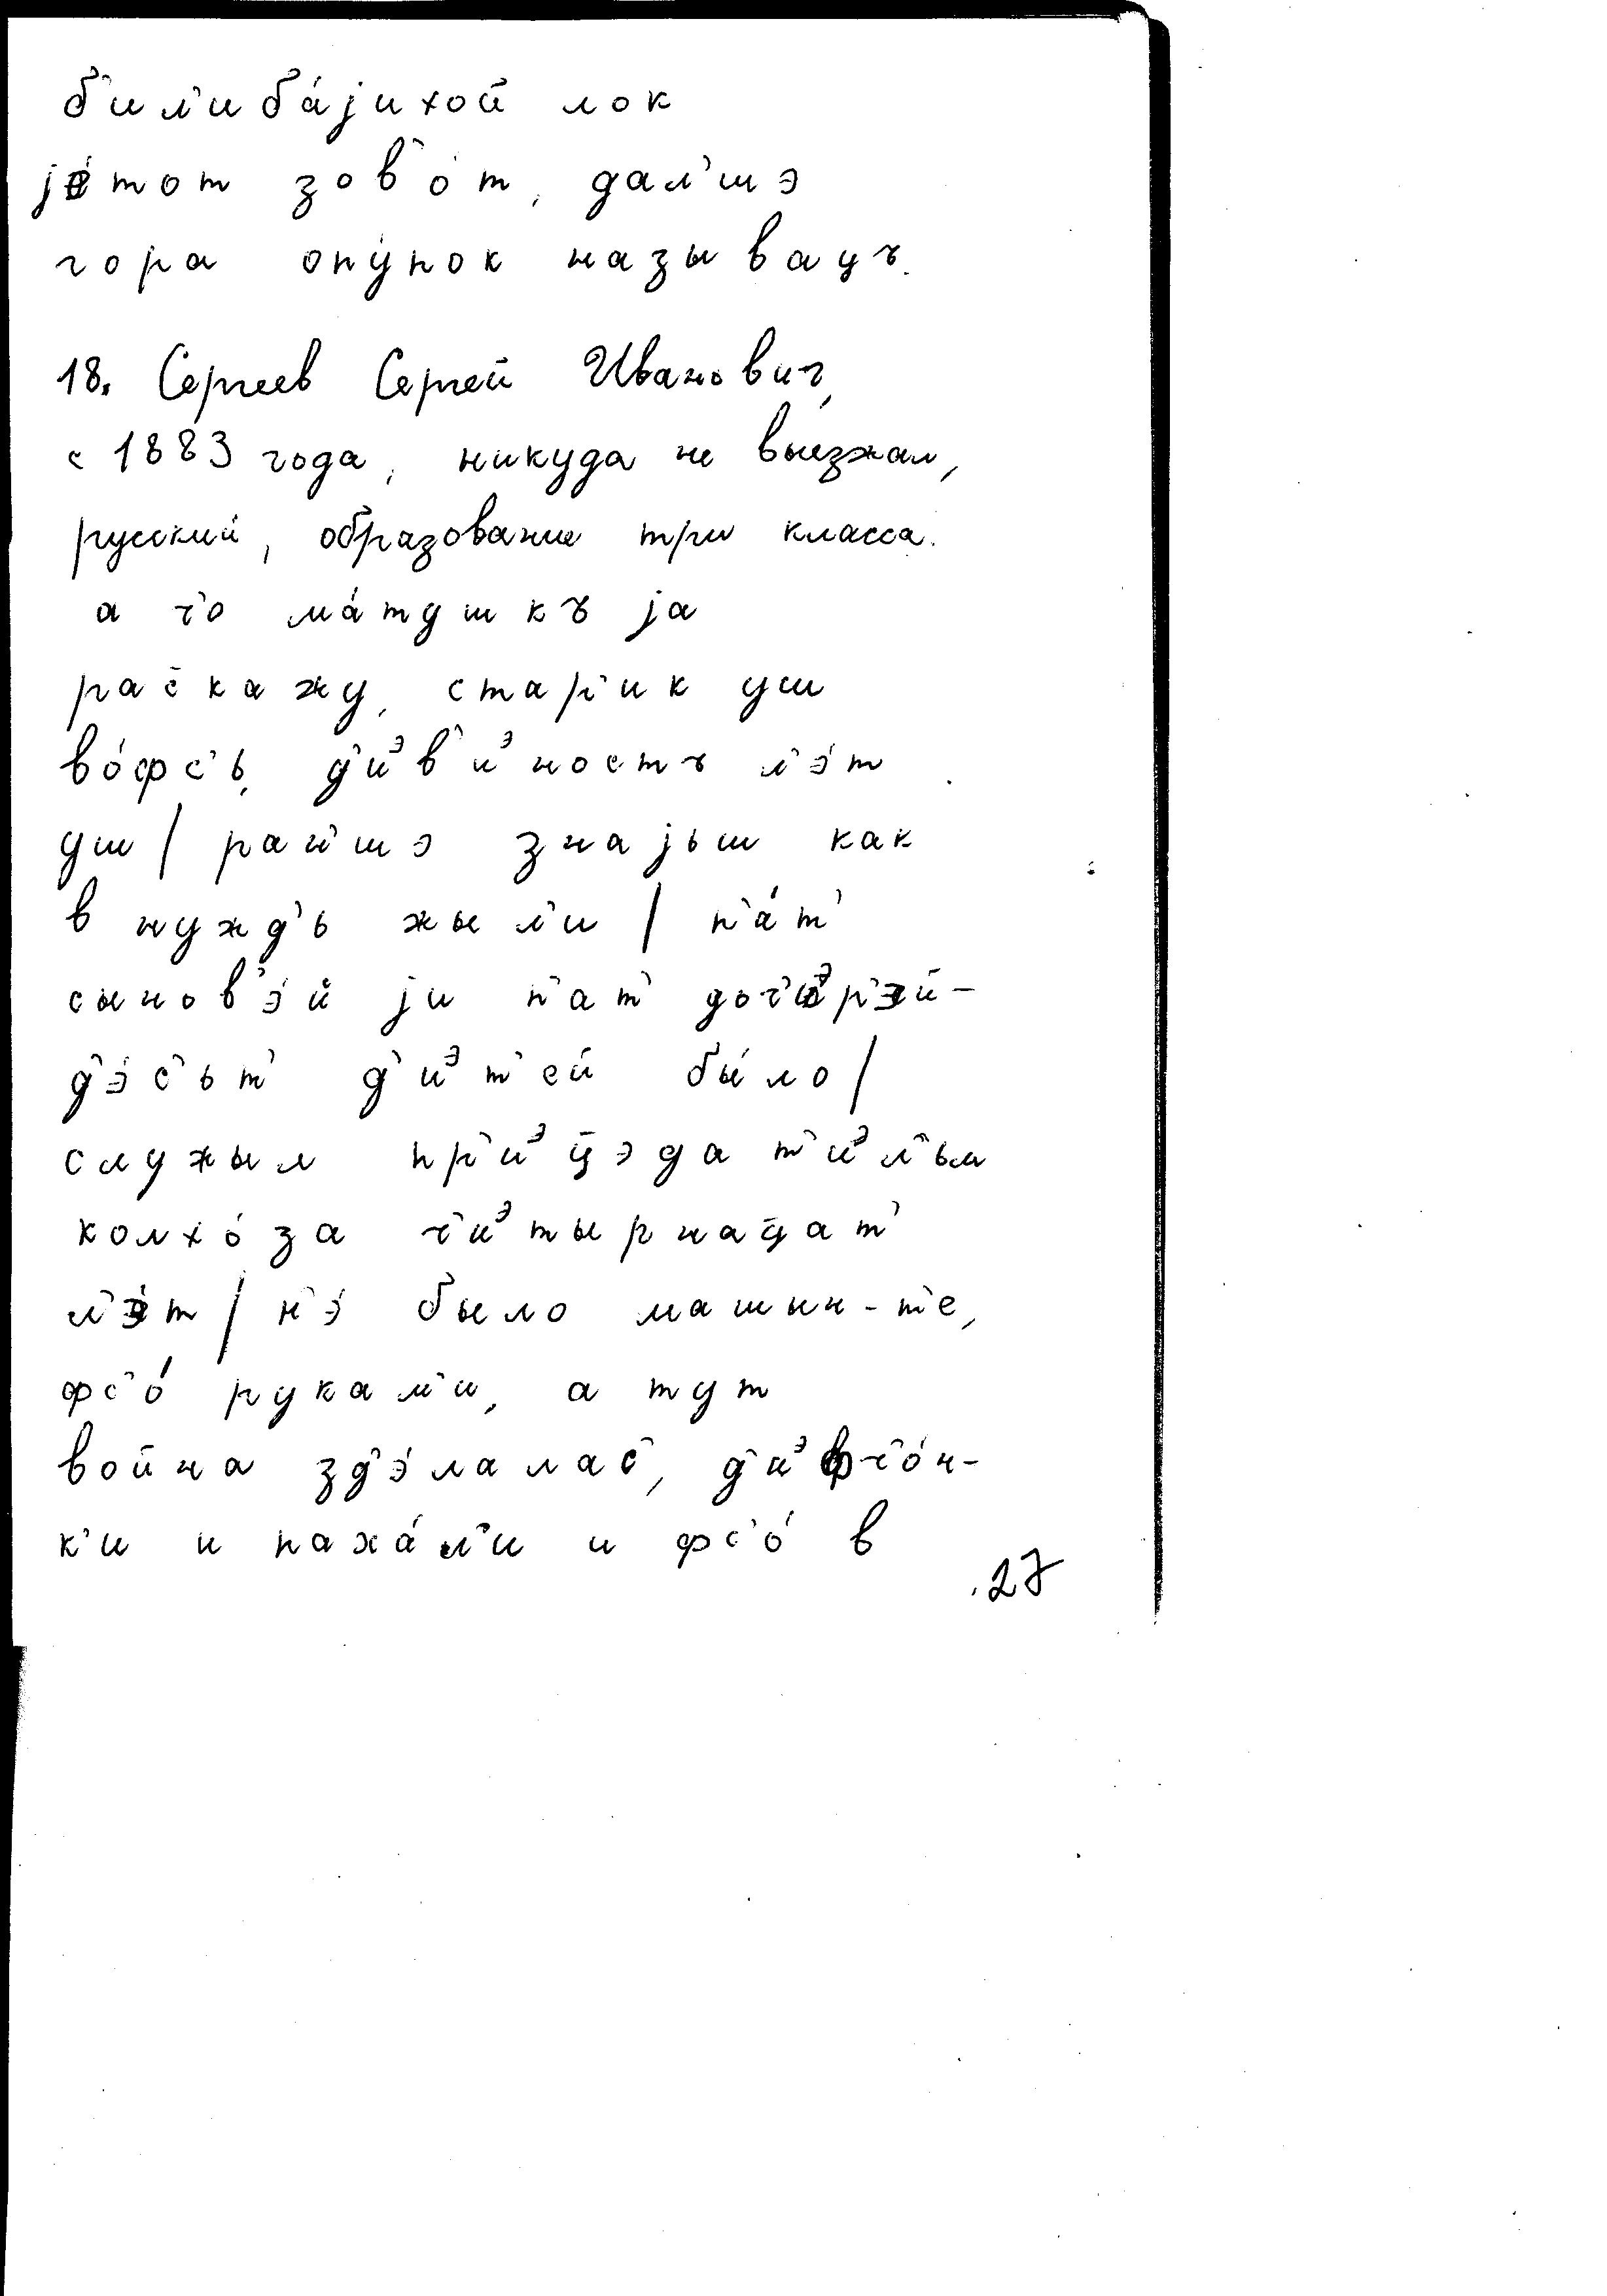 б'ил'иба́jихой лок
jе́тот зов'о́т, дал'шэ
гора опу́пок называуъ.
18. Сергеев Сергей Иванович,
с 1883 года, никуда не выезжал,
русский, образование три класса.
а ч'о ма́тушкъ jа
рас̄кажу, стар'ик уш
во́фс'ь, д'иэв'иэностъ л'э́т
уш / ран'шэ знаjьш как
в нужд'ь жыл'и / п'а́т'
сынов'э́й jи п'ат' доч'иэр'эй-
д'э́с'ьт' д'иэт'ей бы́ло /
служыл пр'иэц̄эдат'иэл'ьм
колхо́за ч'иэтырнац̄ат'
л'э́т / н'э́ было машын-т'е,
фс'о́ рукам'и, а тут
война зд'э́лалас', д'иэфч'о́н-
к'и и паха́л'и и фс'о́ в
27